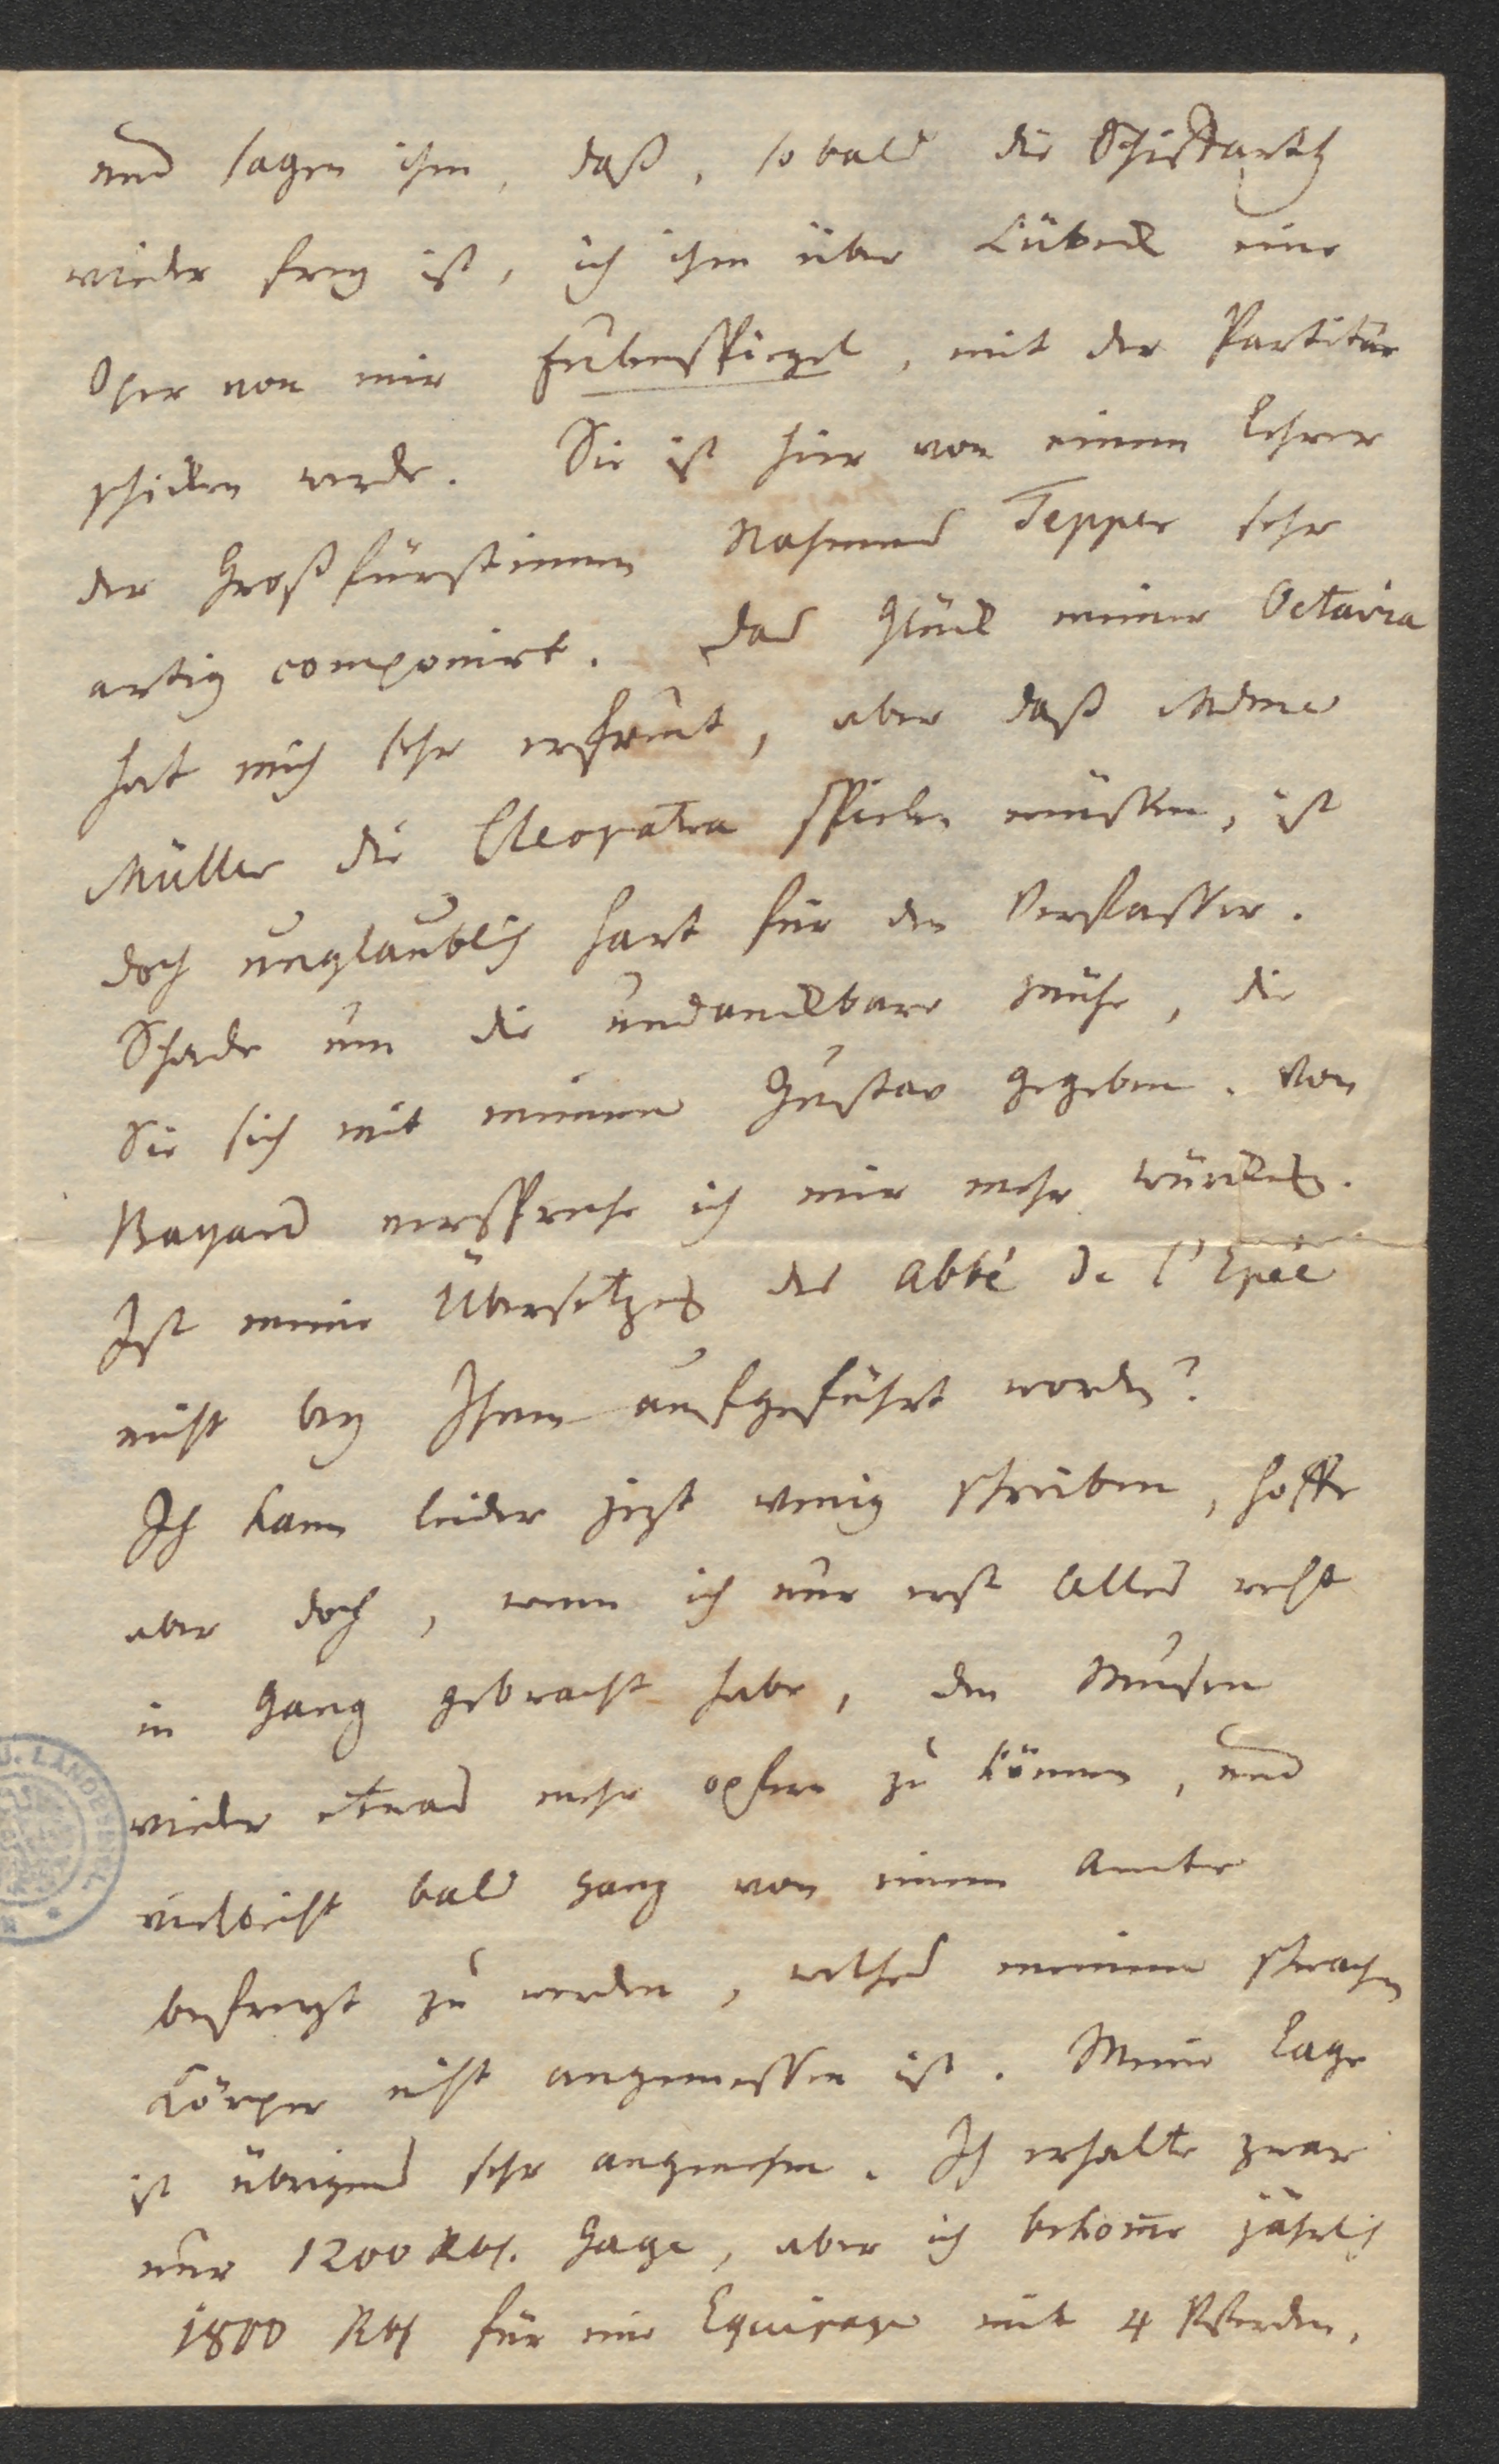 und sagen ihm, daß, so bald die Schiffarth
wieder frey ist, ich ihm über Lübeck eine
Oper von mir Eulenspiegel, mit der Partitur
schicken werde. Sie ist hier von einem Lehrer
der Großfürstinnen Nahmens Tepper sehr
artig componirt. Das Glück meiner Octavia
hat mich sehr erfreut, aber daß Mdme
Müller die Cleopatra spielen müssen, ist
doch unglaublich hart für den Verfasser.
Schade um die undanckbare Mühe, die
Sie sich mit meinem Gustav gegeben. Von
Bayard verspreche ich mir mehr Würckung.
Ist meine Übersetzung des Abbé de l'Epée
nicht bey Ihnen aufgeführt worden?
Ich kann leider jezt wenig schreiben, hoffe
aber doch, wenn ich nur erst Alles recht
in Gang gebracht habe, den Musen
wieder etwas mehr opfern zu können, und
vielleicht bald ganz von einem Amte
befreyt zu werden, welches meinem schwachen
Körper nicht angemessen ist. Meine Lage
ist übrigens sehr angenehm. Ich erhalte zwar
nur 1200 Rbl. Gage, aber ich bekom̅e jährlich
1800 Rbl für eine Equipage mit 4 Pferden,
U. LANDESBIBL.